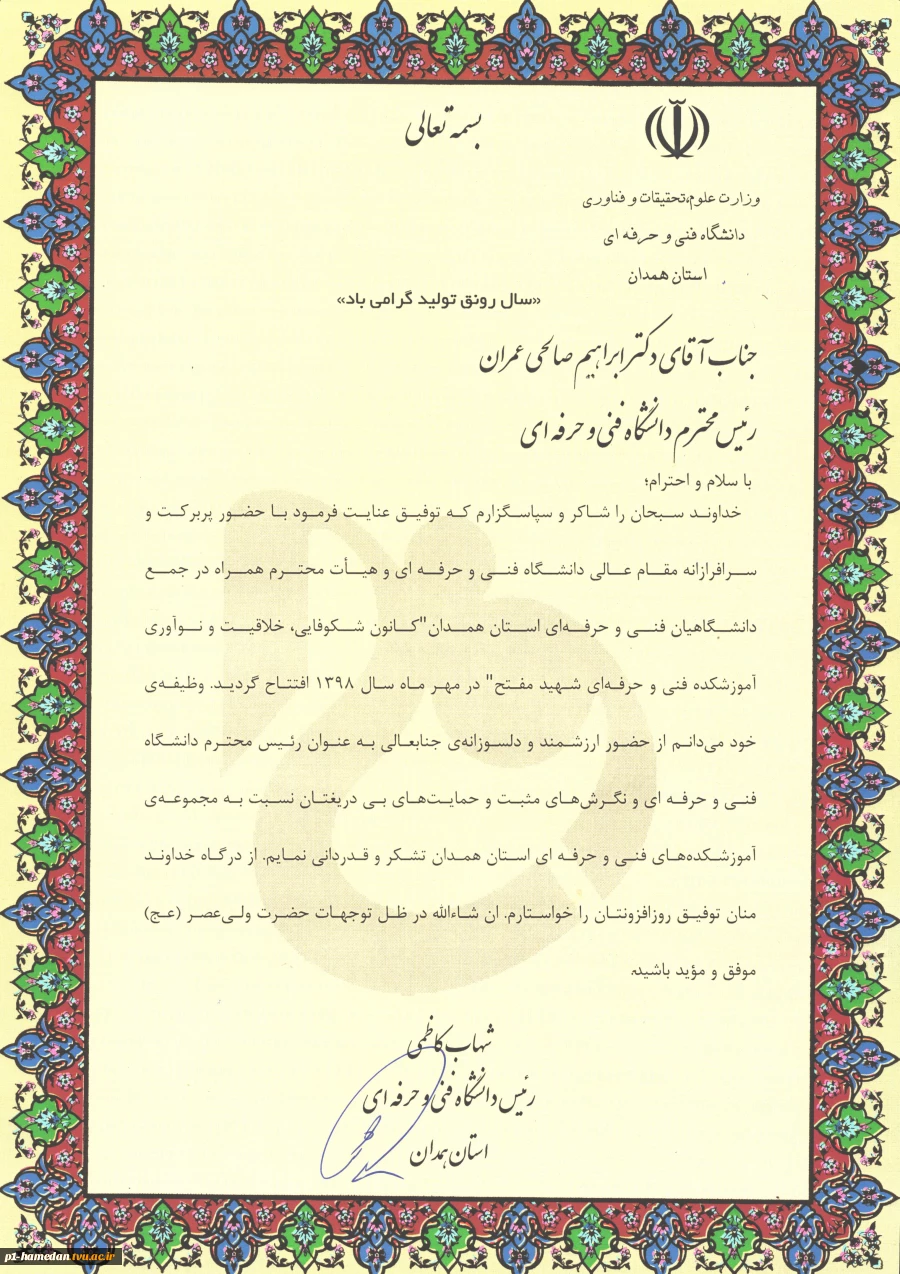 بسمه تعالی
وزارت علوم،تحقیقات و فناوری
دانشگاه فنی و حرفه ای
استان همدان
«سال رونق تولید گرامی باد»
جناب آقای دکتر ابراهیم صالحی عمران
رئیس محترم دانشگاه فنی و حرفه ای
با سلام و احترام؛
خداوند سبحان را شاکر و سپاسگزارم که توفیق عنایت فرمود با حضور پربرکت و
سرافرازانه مقام عالی دانشگاه فنی و حرفه ای و هیأت محترم همراه در جمع
دانشگاهیان فنی و حرفه‌ای استان همدان"کانون شکوفایی، خلاقیت و نوآوری
آموزشکده فنی و حرفه‌ای شهید مفتح" در مهر ماه سال ۱۳۹۸ افتتاح گردید. وظیفه‌ی
خود می‌دانم از حضور ارزشمند و دلسوزانه‌ی جنابعالی به عنوان رئیس محترم دانشگاه
فنی و حرفه ای و نگرش‌های مثبت و حمایت‌های بی دریغتان نسبت به مجموعه‌ی
آموزشکده‌های فنی و حرفه ای استان همدان تشکر و قدردانی نمایم. از درگاه خداوند
منان توفیق روزافزونتان را خواستارم. ان شاءالله در ظل توجهات حضرت ولی‌عصر (عج)
موفق و مؤید باشید.
شهاب کاظمی
رئیس دانشگاه فنی و حرفه ای
استان همدان
p1-hamedan.tvu.ac.ir